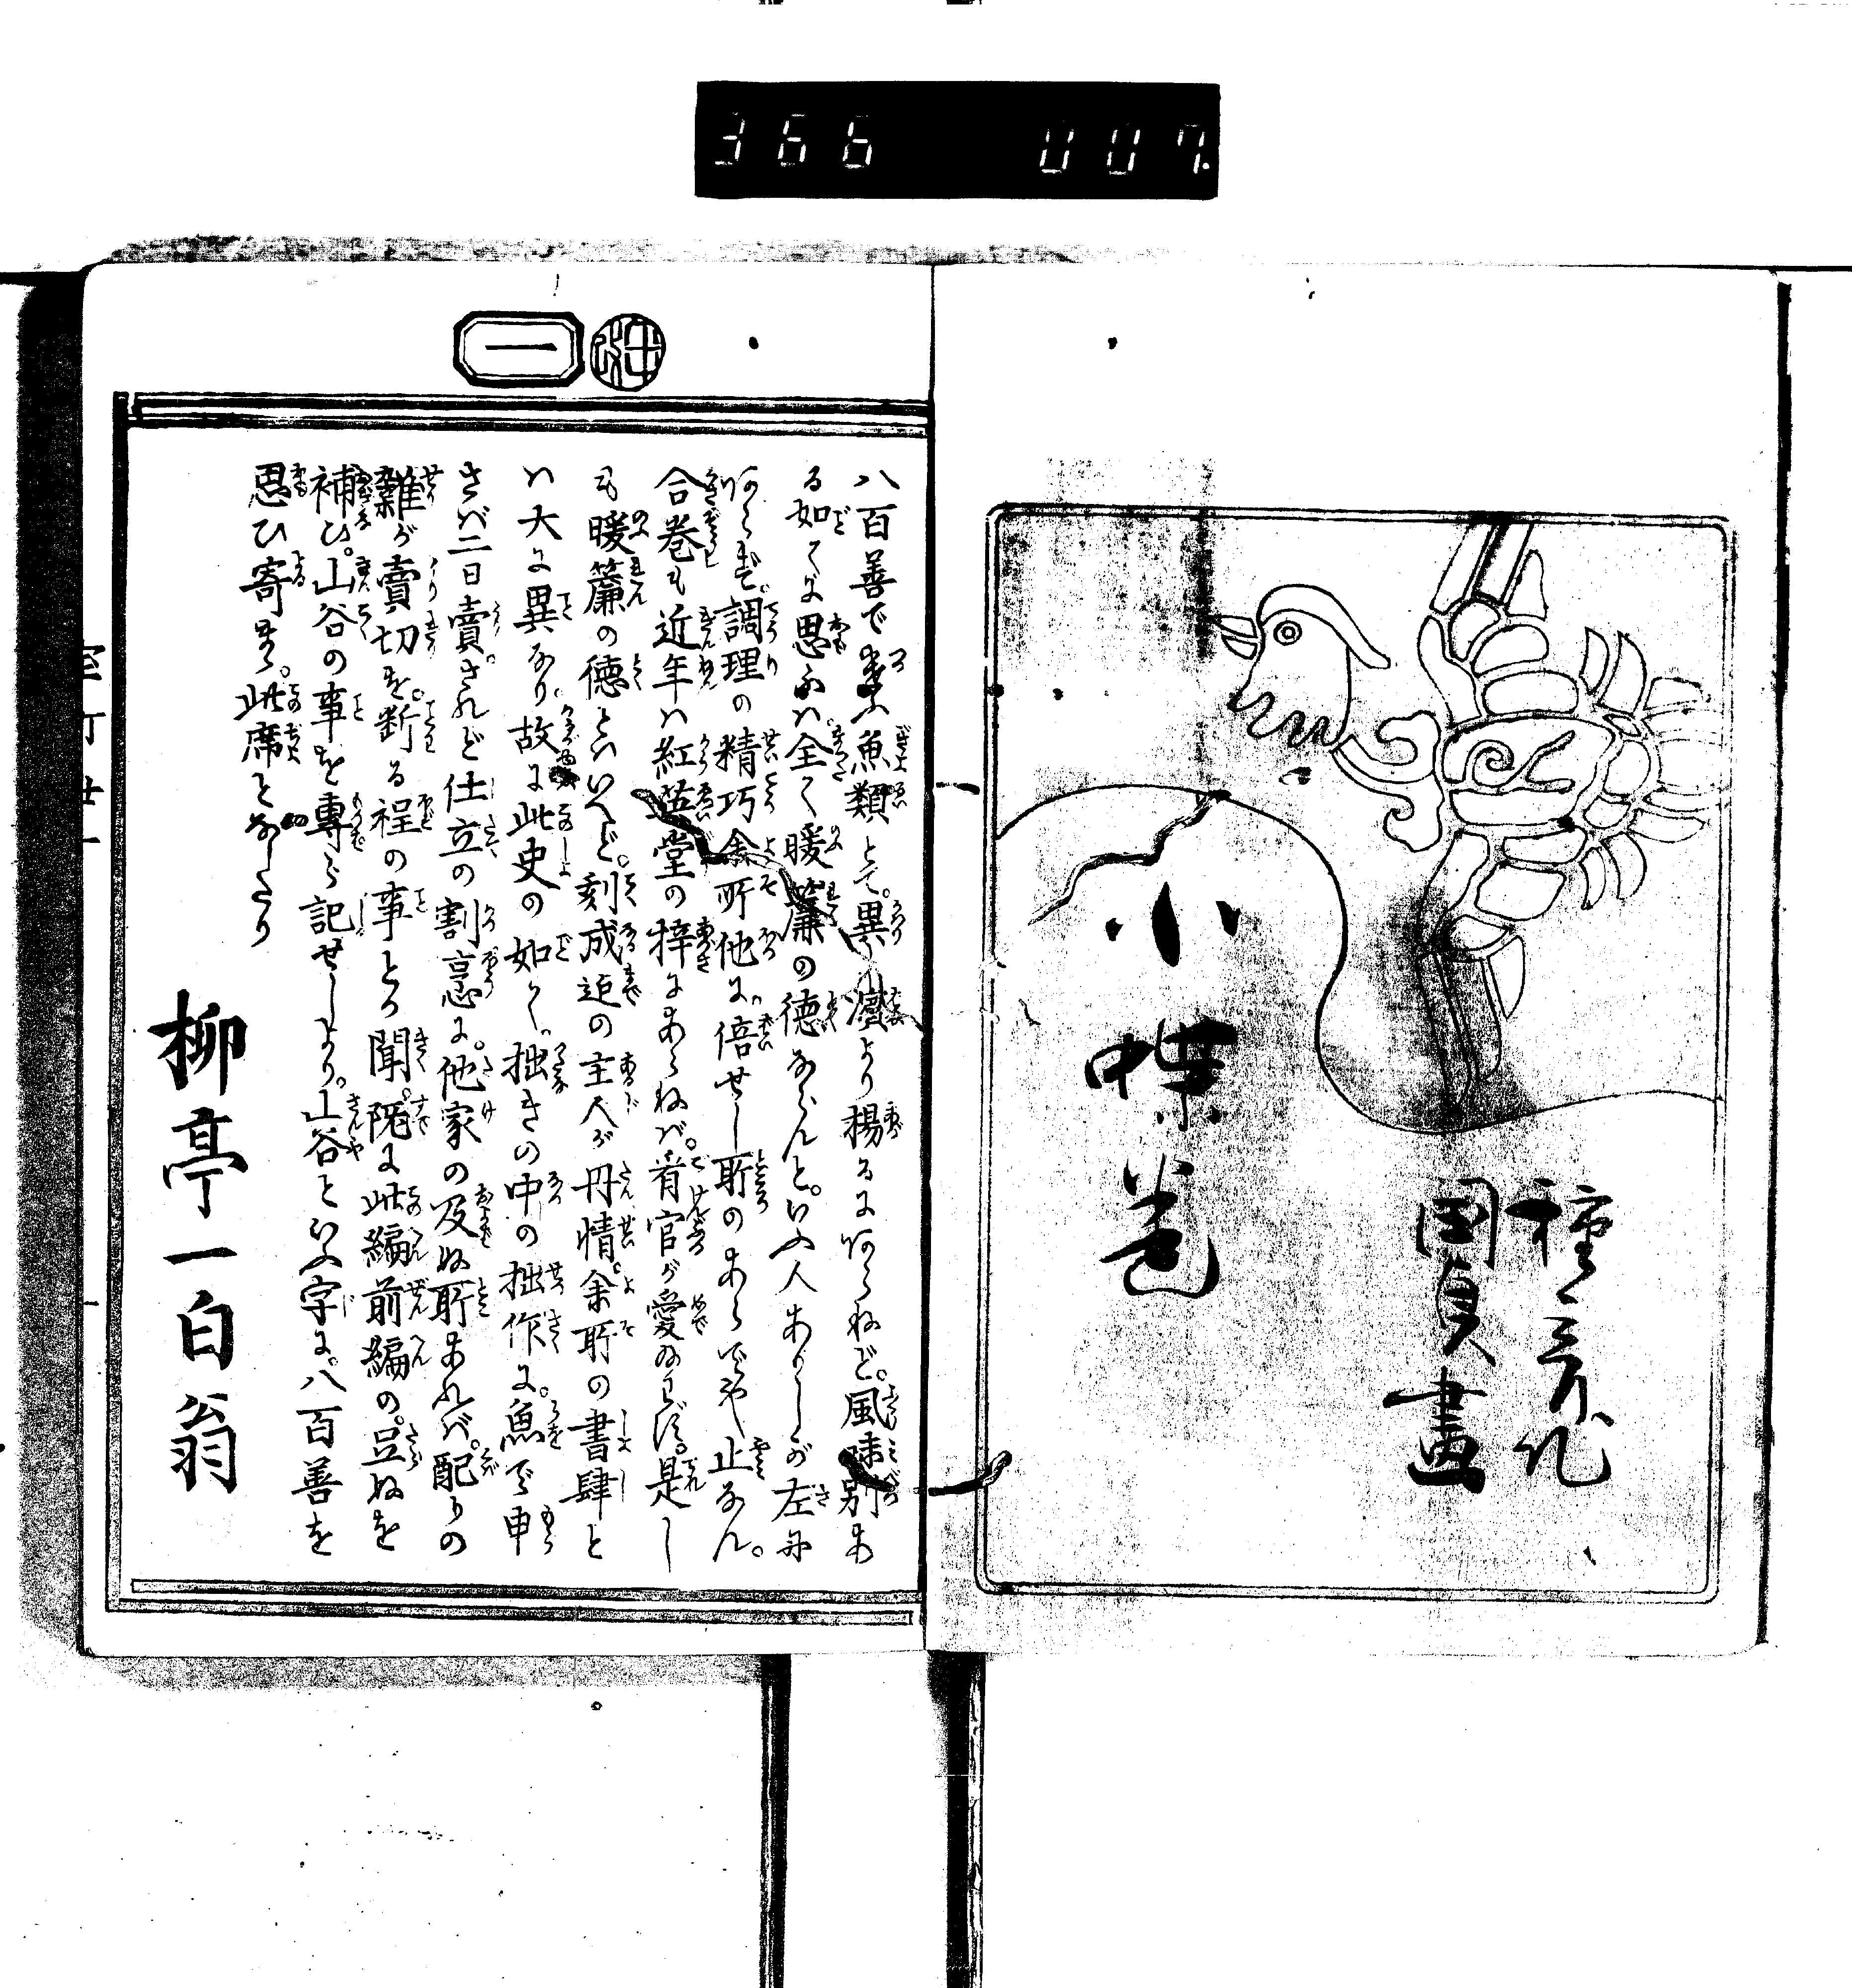 366 007
種彦作
国貞画
小蝶
巻
一
八百善で遣ふ魚類とて。異り濱より揚るにあらねど。風味別あ
る如くに思ふハ。全く暖簾の徳ならんと。いふ人ありしが左に
あらず。調理の精巧余所他に。倍せし所のあらでや止なん。
合巻も近年ハ紅英堂の梓にあらねば。看官が愛給はず。是し
も暖簾の徳といへど。刻成迄の主人が丹情。余所の書肆と
ハ大に異なり。故に此史の如く。拙きの中の拙作に。魚で申
さバ二日賣。されど仕立の割烹に。他家の及ぬ所あれバ。配りの
雑が賣切を。断る程の事とか聞。既に此編前編の。足ぬを
補ひ。山谷の事を専ら記せしより。山谷といふ字に。八百善を
思ひ寄せ。此席となしたり
柳亭一白翁